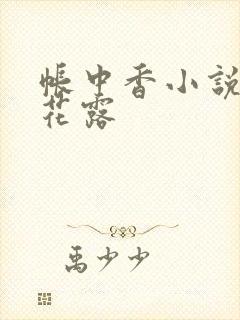 帳中香小說
花露
禹少少